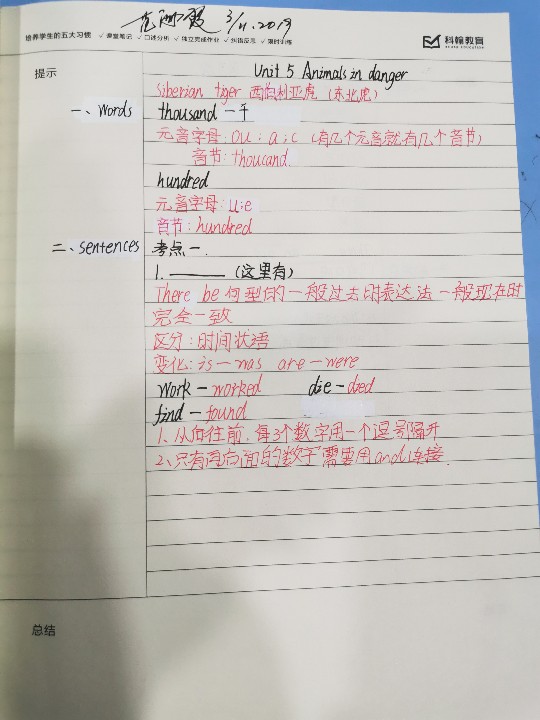 3/11.2019
培养学生的五大习惯 ✓课堂笔记 ✓口述分析 ✓独立完成作业 ✓纠错反思 ✓限时训练
科翰教育
提示
Unit 5 Animals in danger
Siberian tiger 西伯利亚虎 (东北虎)
一、Words
thousand 一千
元音字母: ou; a; (有几个元音就有几个音节)
音节: thoucand
hundred
元音字母: u; e
音节: hundred
二、sentences
考点一.
1. ______ (这里有)
There be 句型的一般过去时表达法 一般现在时
完全一致
区分: 时间状语
变化: is – was are – were
work – worked die – died
find – found
1. 从后往前, 每3个数字用一个逗号隔开
2、只有百后面的数字需要用and连接.
总结